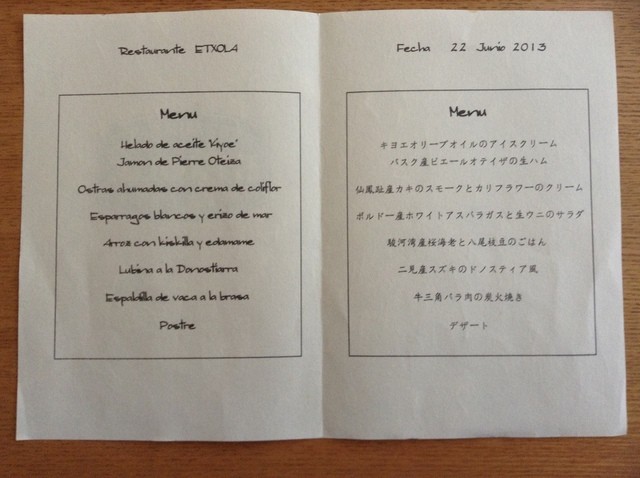 Restaurante ETXOLA
Menu
Helado de aceite 'Kiyoe'
Jamon de Pierre Oteiza
Ostras ahumadas con crema de coliflor
Esparragos blancos y erizo de mar
Arroz con kiskilla y edamame
Lubina a la Donostiarra
Espaldilla de vaca a la brasa
Postre
Fecha 22 Junio 2013
Menu
キヨエオリーブオイルのアイスクリーム
バスク産ピエールオテイザの生ハム
仙鳳趾産カキのスモークとカリフラワーのクリーム
ボルドー産ホワイトアスパラガスと生ウニのサラダ
駿河湾産桜海老と八尾枝豆のごはん
二見産スズキのドノスティア風
牛三角バラ肉の炭火焼き
デザート